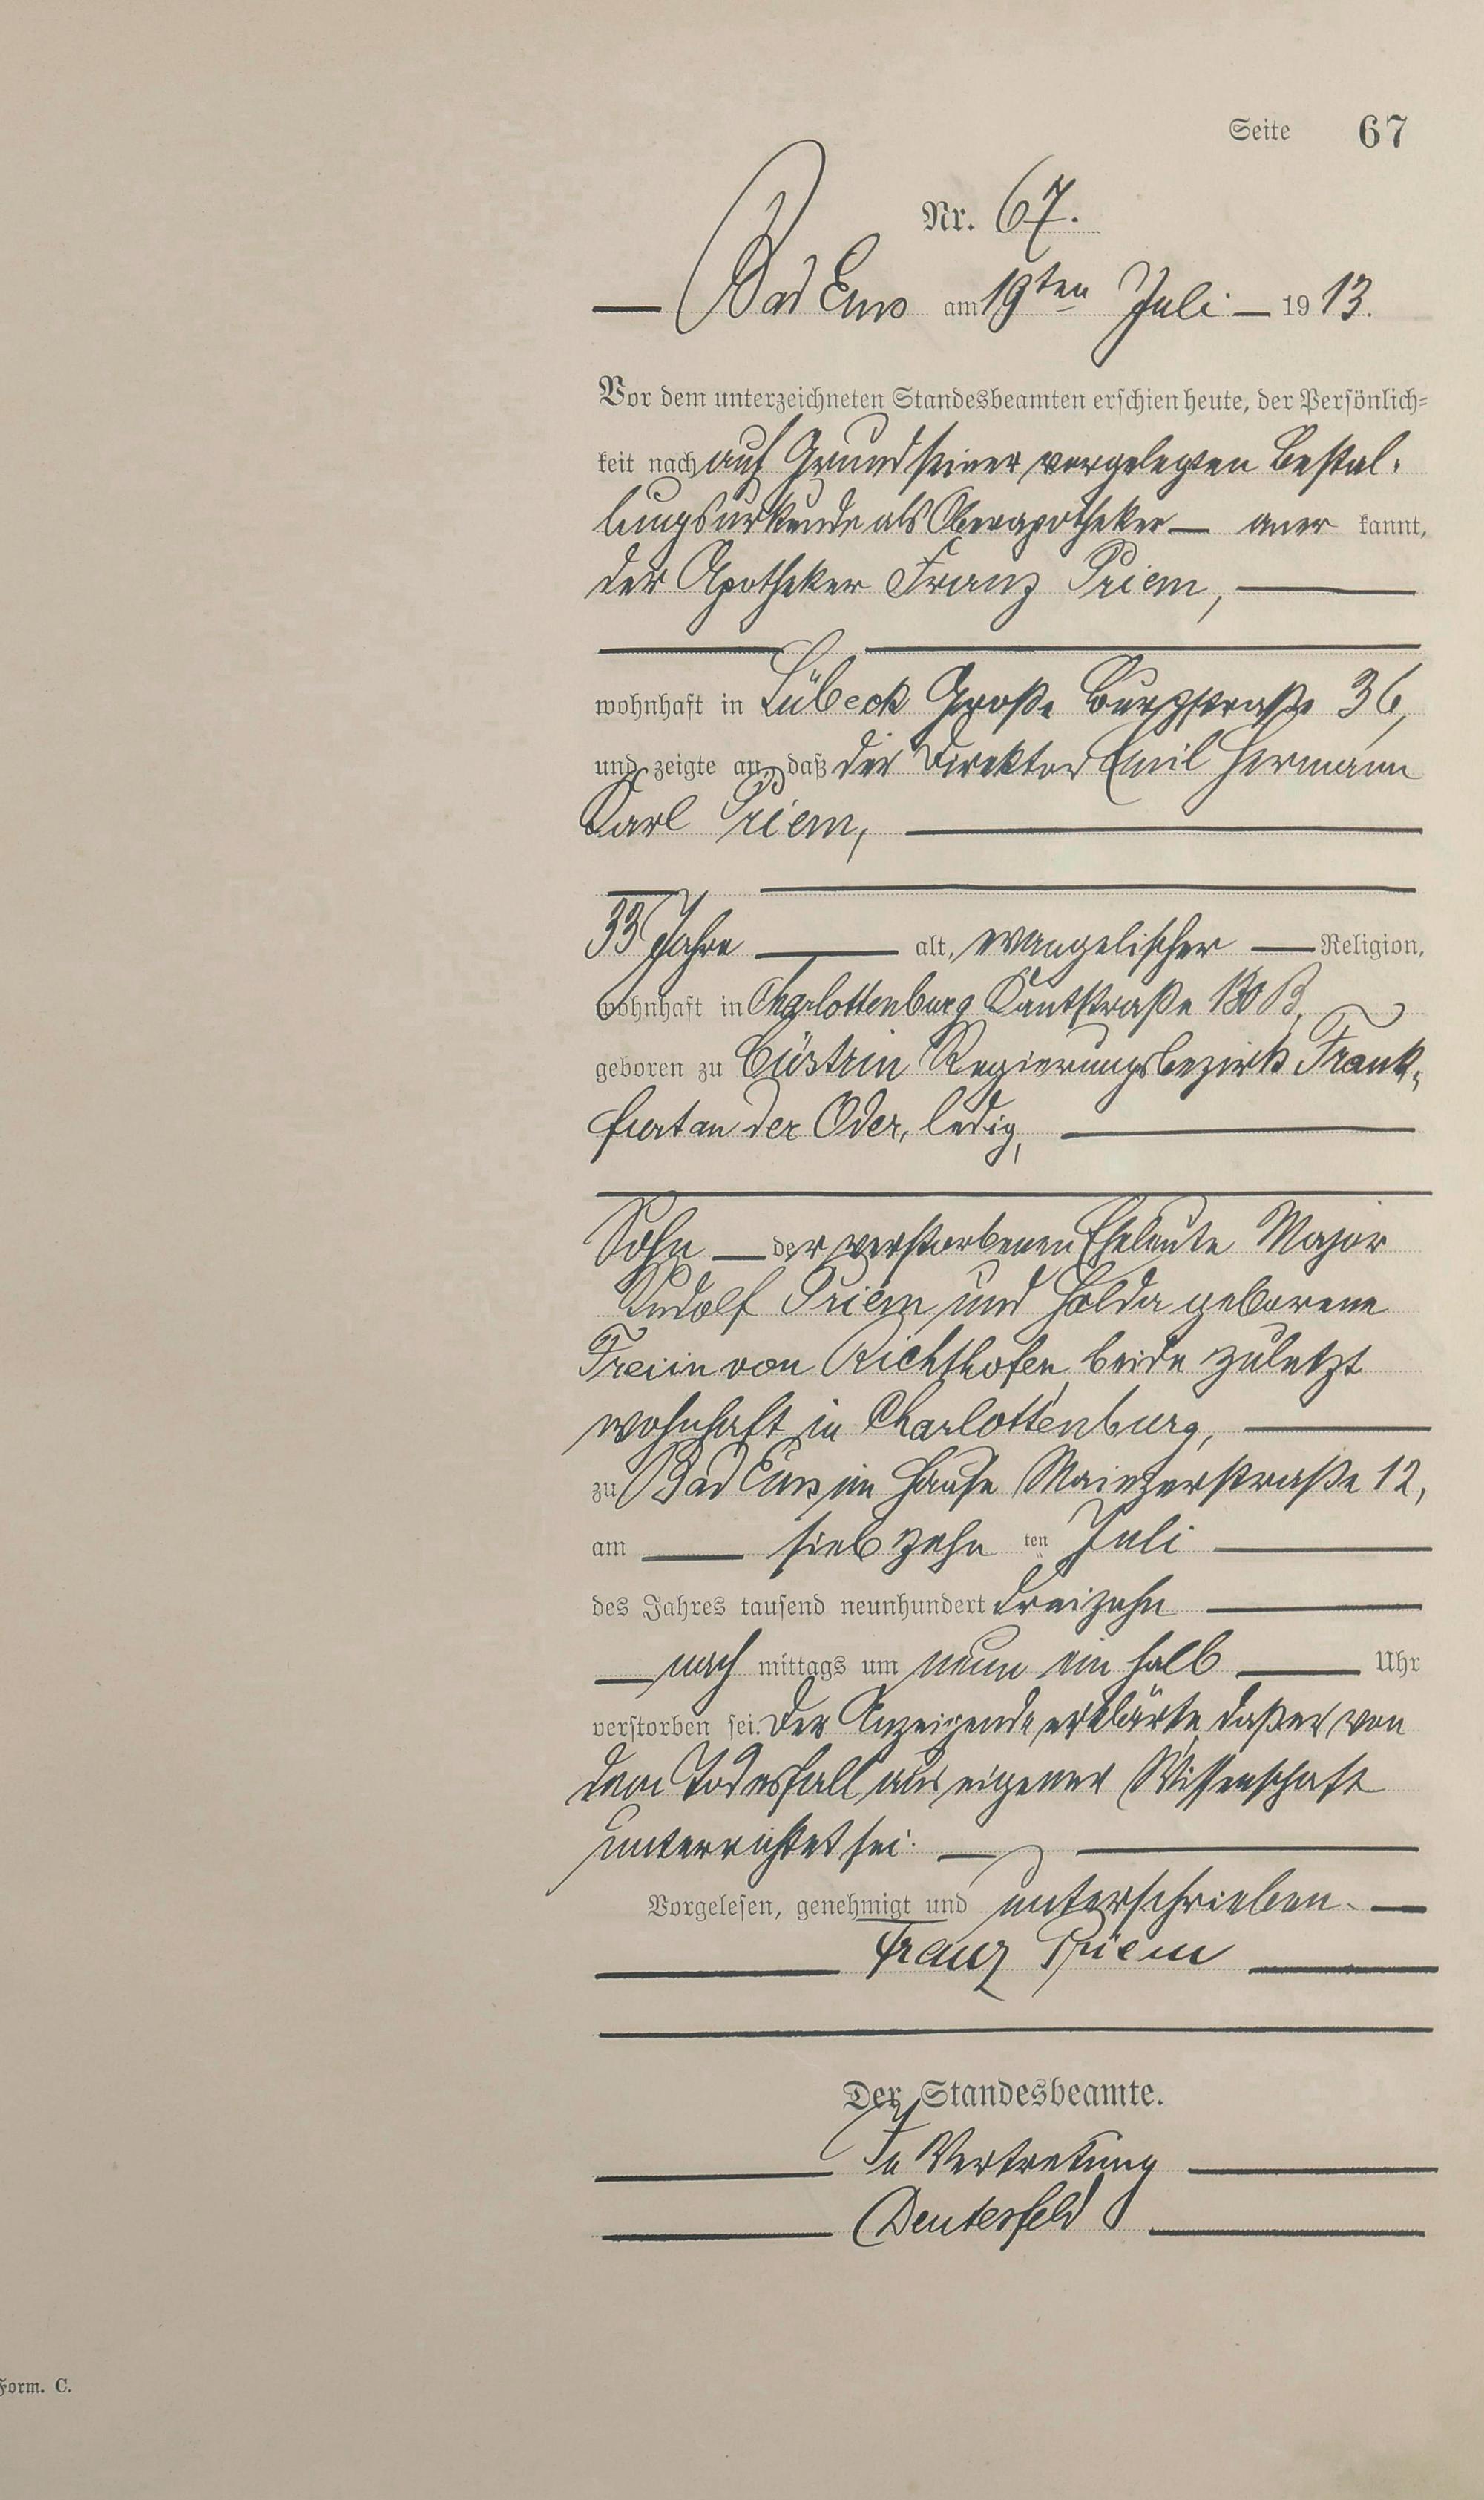 Seite 67
Nr. 67.
Bad Ems am 19ten Juli 1913.
Vor dem unterzeichneten Standesbeamten erschien heute, der Persönlich-
keit nach auf Grund seiner vorgelegten Bestal-
lungsurkunde als Oberapotheker aner kannt,
der Apotheker Franz Priem,
wohnhaft in Lübeck Große Burgstraße 36,
und zeigte an, daß der Direktor Emil Hermann
Karl Priem,
33 Jahre alt, evangelischer Religion,
wohnhaft in Charlottenburg Kantstraße 130 B,
geboren zu Cüstrin Regierungsbezirk Frank-
furt an der Oder, ledig,
Sohn der verstorbenen Eheleute Major
Rudolf Priem und Holda geborene
Freiin von Richthofen, beide zuletzt
wohnhaft in Charlottenburg,
zu Bad Ems im Hause Mainzerstraße 12,
am siebzehn ten Juli
des Jahres tausend neunhundert dreizehn
nach mittags um neun ein halb Uhr
verstorben sei. Der Anzeigende erklärte, daß er von
dem Todesfall aus eigener Wissenschaft
unterrichtet sei.
Vorgelesen, genehmigt und unterschrieben.
Franz Priem
Der Standesbeamte.
In Vertretung
Deutesfeld
Form. C.